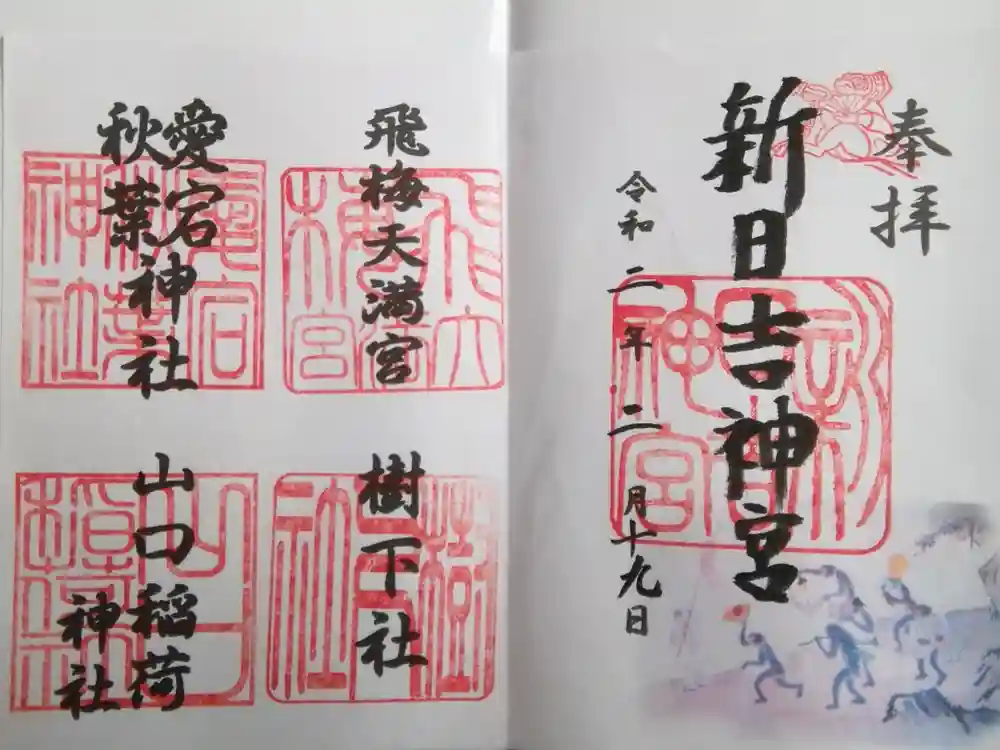 奉拝
新日吉神宮
令和二年二月十九日
飛梅天満宮
樹下社
愛宕
秋葉神社
山口稲荷
神社